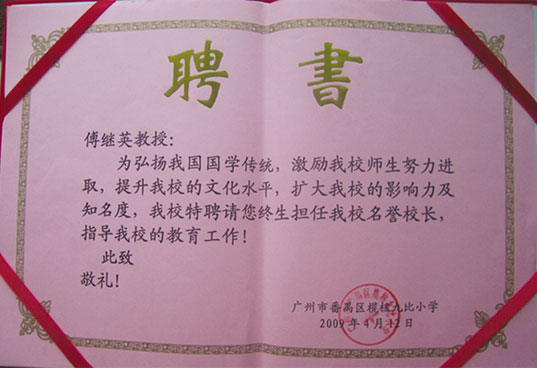 聘書
傅继英教授：
为弘扬我国国学传统，激励我校师生努力进
取，提升我校的文化水平，扩大我校的影响力及
知名度，我校特聘请您终生担任我校名誉校长，
指导我校的教育工作！
此致
敬礼！
广州市番禺区榄核九比小学
2009年4月12日